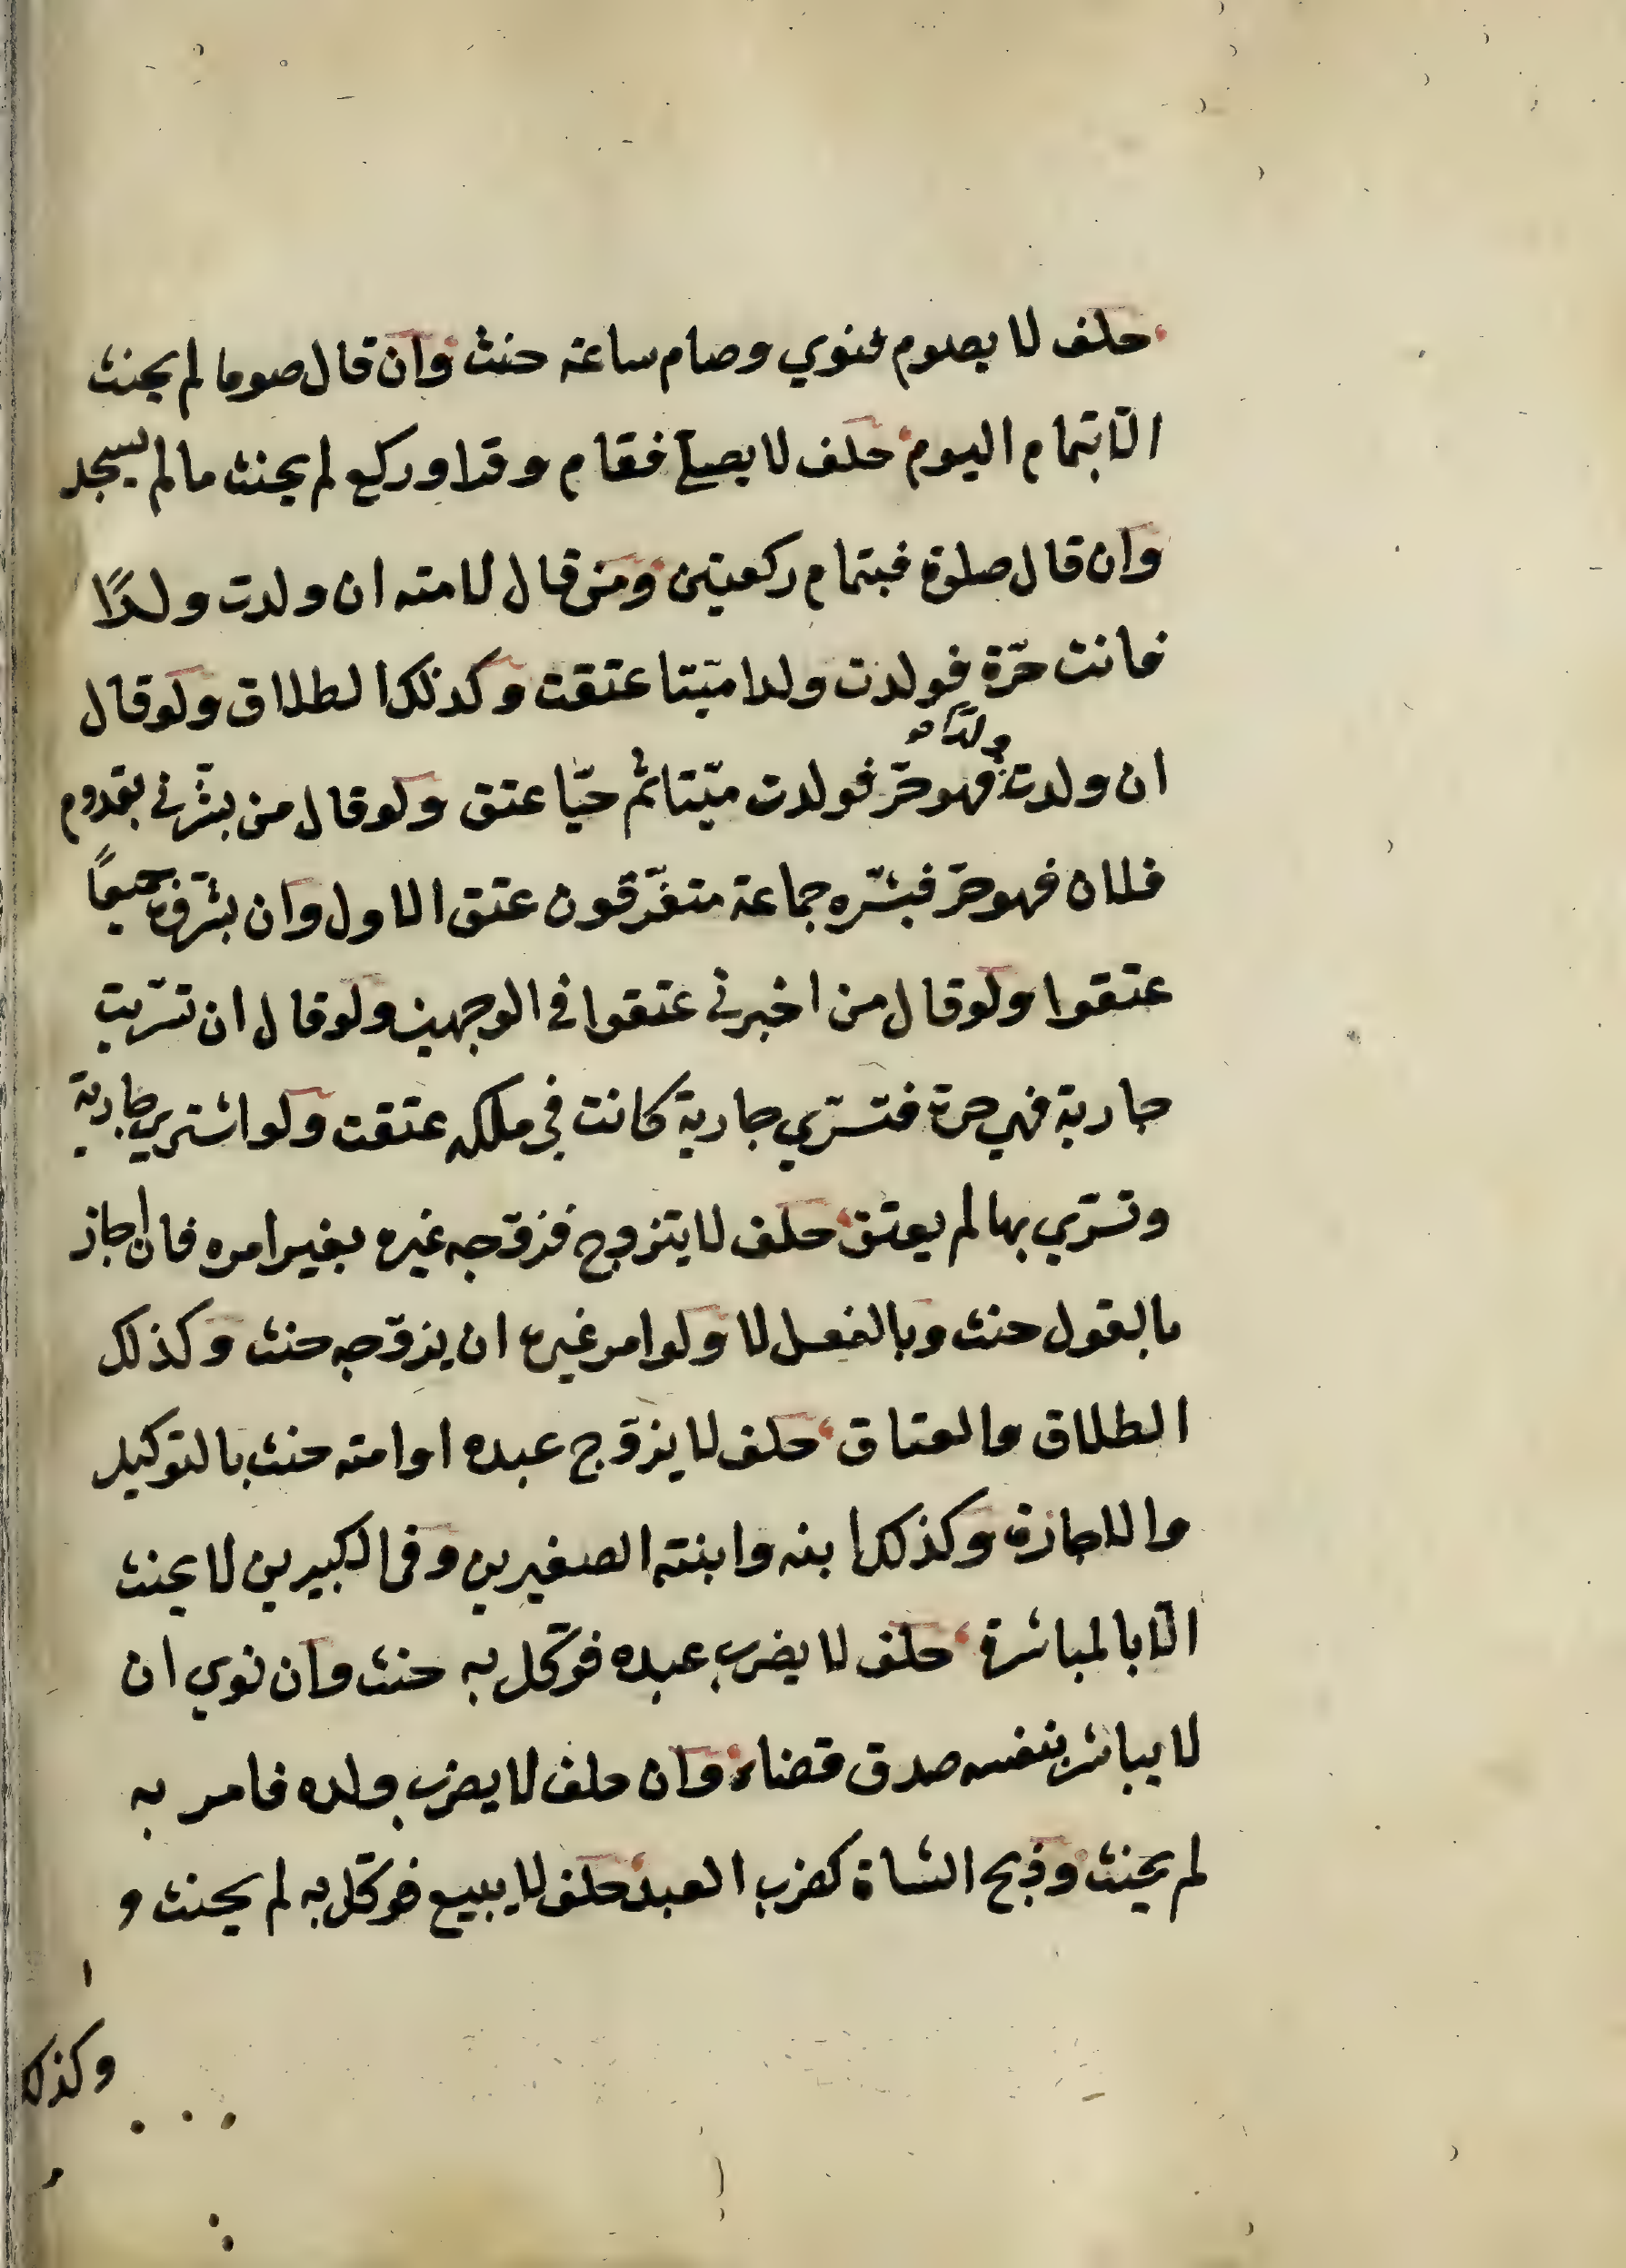 حلف لا يصوم فنوي وصام ساعة حنث وان قال صوما لم يحنث
الّا بتمام اليوم حلف لا يصلي فقام وقرا وركع لم يحنث ما لم يسجد
وان قال صلوة فبتمام ركعتين ومن قال لامته ان ولدت ولدًا
فانت حرّة فولدت ولدا ميّتا عتقت وكذلك الطلاق ولو قال
ولدًا
ان ولدت فهو حرّ فولدت ميّتا ثم حيّا عتق ولو قال من بشّرني بقدوم
فلان فهو حرّ فبشّره جماعة متفرّقون عتق الاول وان بشّروه جميعًا
عتقوا ولو قال من اخبرني عتقوا في الوجهين ولو قال ان تسرّيت
جارية فهي حرة فتسرّي جارية كانت في ملكه عتقت ولو اشتري جارية
وتسرّي بها لم يعتق حلف لا يتزوج فزوّجه غيره بغير امره فان اجاز
بالقول حنث وبالفعل لا ولو امر غيره ان يزوّجه حنث وكذلك
الطلاق والعتاق حلف لا يزوّج عبده او امته حنث بالتوكيل
والاجازة وكذلك ابنه وابنته الصغيرين وفي الكبيرين لا يحنث
الّا بالمباشرة حلف لا يضرب عبده فوكّل به حنث وان نوي ان
لا يباشر بنفسه صدق قضاء وان حلف لا يضرب ولده فامر به
لم يحنث وذبح الشاة كضرب العبد حلف لا يبيع فوكّل به لم يحنث و
وكذلك